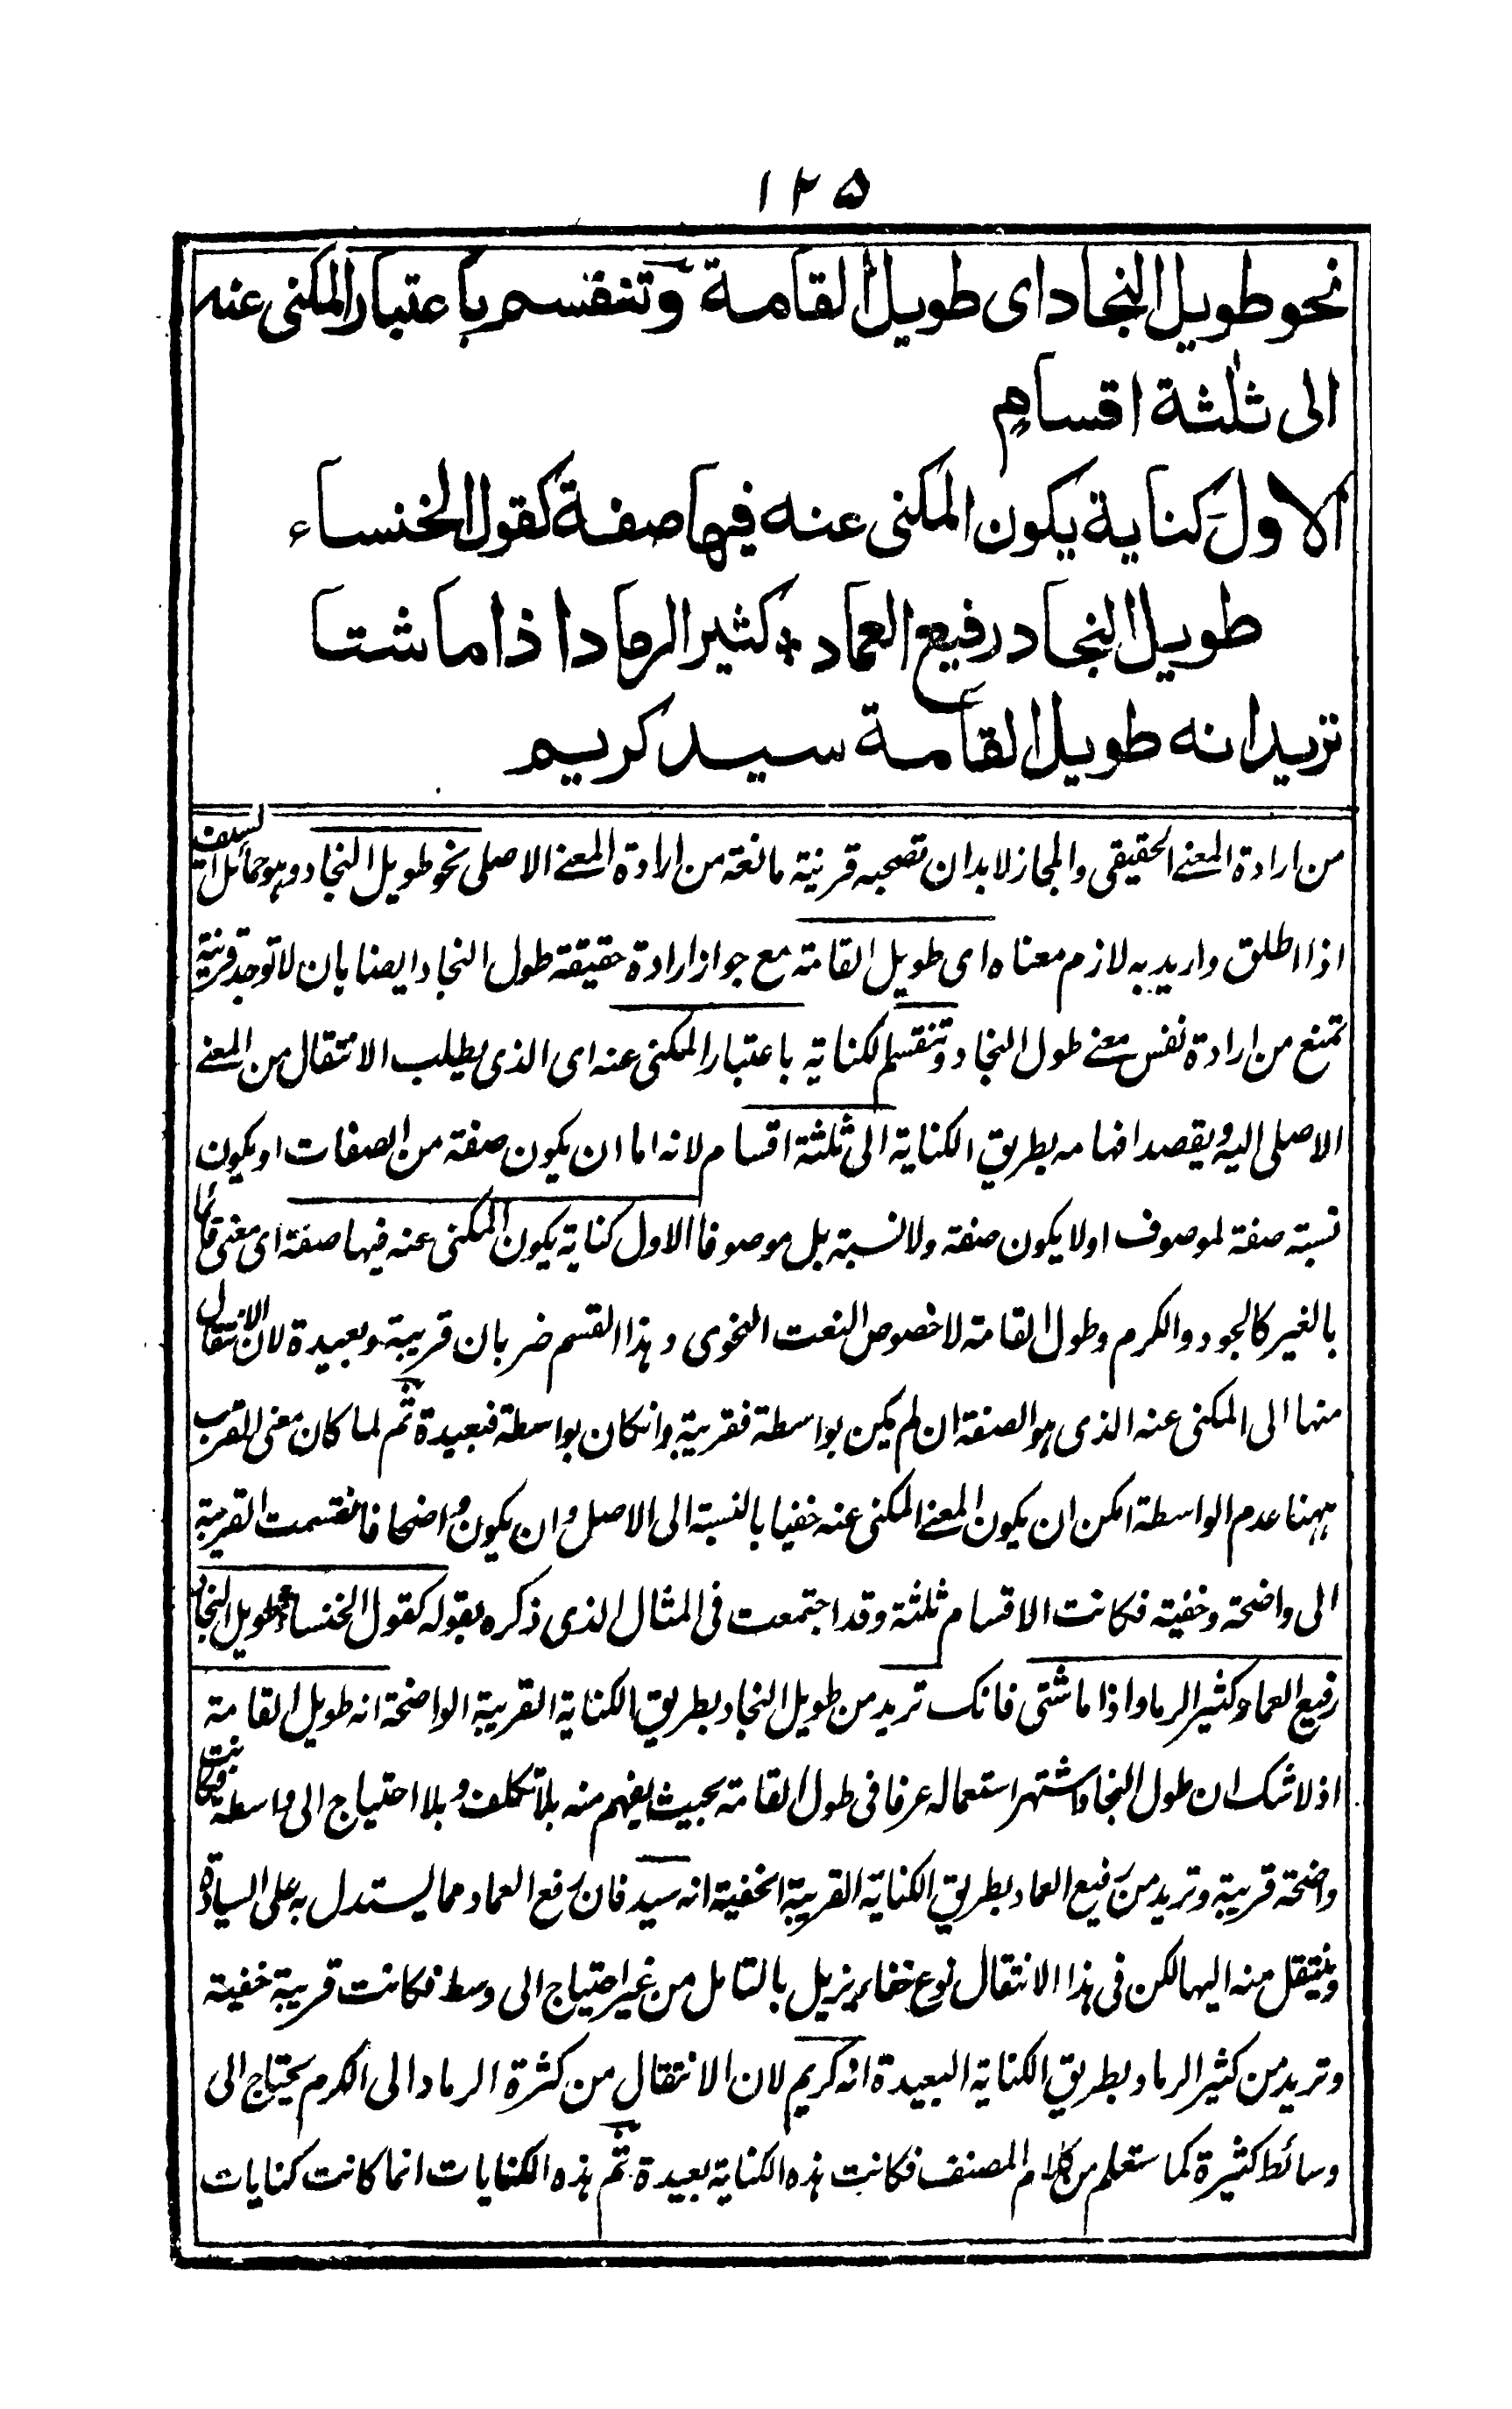 ۱۲۵
نحو طويل النجاد اى طويل القامة وتنقسم باعتبار المكنى عنه
الى ثلٰثة اقسام
الاول كناية يكون المكنى عنه فيها صفة كقول الخنساء
طويل النجاد رفيع العماد * كثير الرماد اذا ما شتا
تريد انه طويل القامة سيد كريم
من ارادة المعنے الحقيقى والمجاز لابد ان تصحبه قرينة مانعة من ارادة المعنے الاصلى نحو طويل النجاد وهو حمائل السيف
اذا اطلق واريد به لازم معناه اى طويل القامة مع جواز ارادة حقيقة طول النجاد ايضا بان لا توجد قرينة
تمنع من ارادة نفس معنے طول النجاد وتنقسم الكناية باعتبار المكنى عنه اى الذى يطلب الانتقال من المعنے
الاصلى اليه ويقصد افهامه بطريق الكناية الى ثلثة اقسام لانه اما ان يكون صفة من الصفات او يكون
نسبة صفة لموصوف او لا يكون صفة ولا نسبة بل موصوفا الاول كناية يكون المكنى عنه فيها صفة اى معنى قائما
بالغير كالجود والكرم وطول القامة لا خصوص النعت النحوى وهذا القسم ضربان قريبة وبعيدة لان الانتقال
منها الى المكنى عنه الذى هو الصفة ان لم يكن بواسطة فقريبة وانكان بواسطة فبعيدة ثم لما كان معنى القرب
ههنا عدم الواسطة امكن ان يكون المعنے المكنى عنه خفيا بالنسبة الى الاصل وان يكون واضحا فانقسمت القريبة
الى واضحة وخفية فكانت الاقسام ثلثة وقد اجتمعت فى المثال الذى ذكره بقوله كقول الخنساء طويل النجاد
رفيع العماد كثير الرماد اذا ما شتى فانك تريد من طويل النجاد بطريق الكناية القريبة الواضحة انه طويل القامة
اذ لا شك ان طول النجاد اشتهر استعماله عرفا فى طول القامة بحيث يفهم منه بلا تكلف وبلا احتياج الى واسطة فكانت
واضحة قريبة وتريد من رفيع العماد بطريق الكناية القريبة الخفية انه سيد فان رفع العماد مما يستدل به على السيادة
وينتقل منه اليها لكن فى هذا الانتقال نوع خفاء يزيل بالتامل من غير احتياج الى وسط فكانت قريبة خفية
وتريد من كثير الرماد بطريق الكناية البعيدة انه كريم لان الانتقال من كثرة الرماد الى الكرم يحتاج الى
وسائط كثيرة كما ستعلم من كلام المصنف فكانت هذه الكناية بعيدة ثم هذه الكنايات انما كانت كنايات